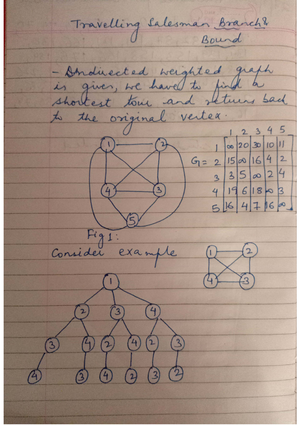 Travelling Salesman Branch &
Bound
- Undirected weighted graph
is given, we have to find a
shortest tour and return back
to the original vertex.
1 2 3 4 5
1 ∞ 20 30 10 11
G= 2 15 ∞ 16 4 2
3 3 5 ∞ 2 4
4 19 6 18 ∞ 3
5 16 4 7 16 ∞
1 2
4 3
5
Fig 1:
Consider example
1 2
4 3
1
2 3 4
3 4 2 4 2 3
4 3 4 2 3 2